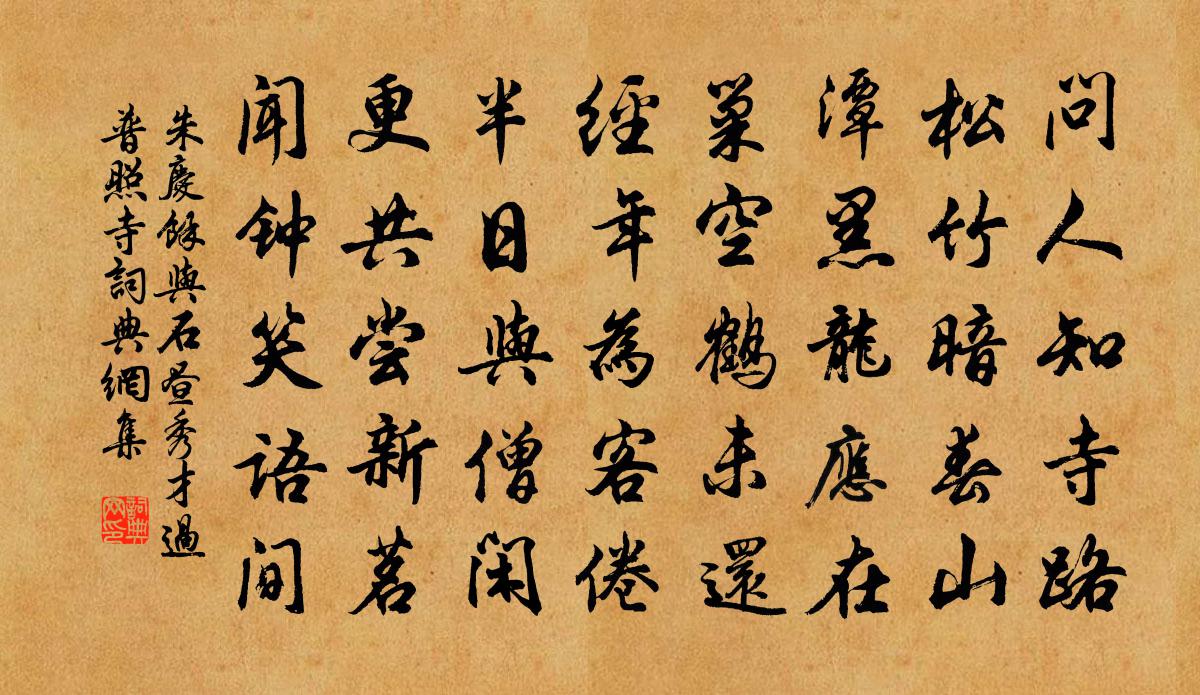 问人知寺路
松竹暗春山
潭黑龍應在
巢空鶴未還
經年為客倦
半日與僧閑
更共尝新茗
闻钟笑语间
朱慶餘與石昼秀才過
普照寺詞典網集
詞典
网印